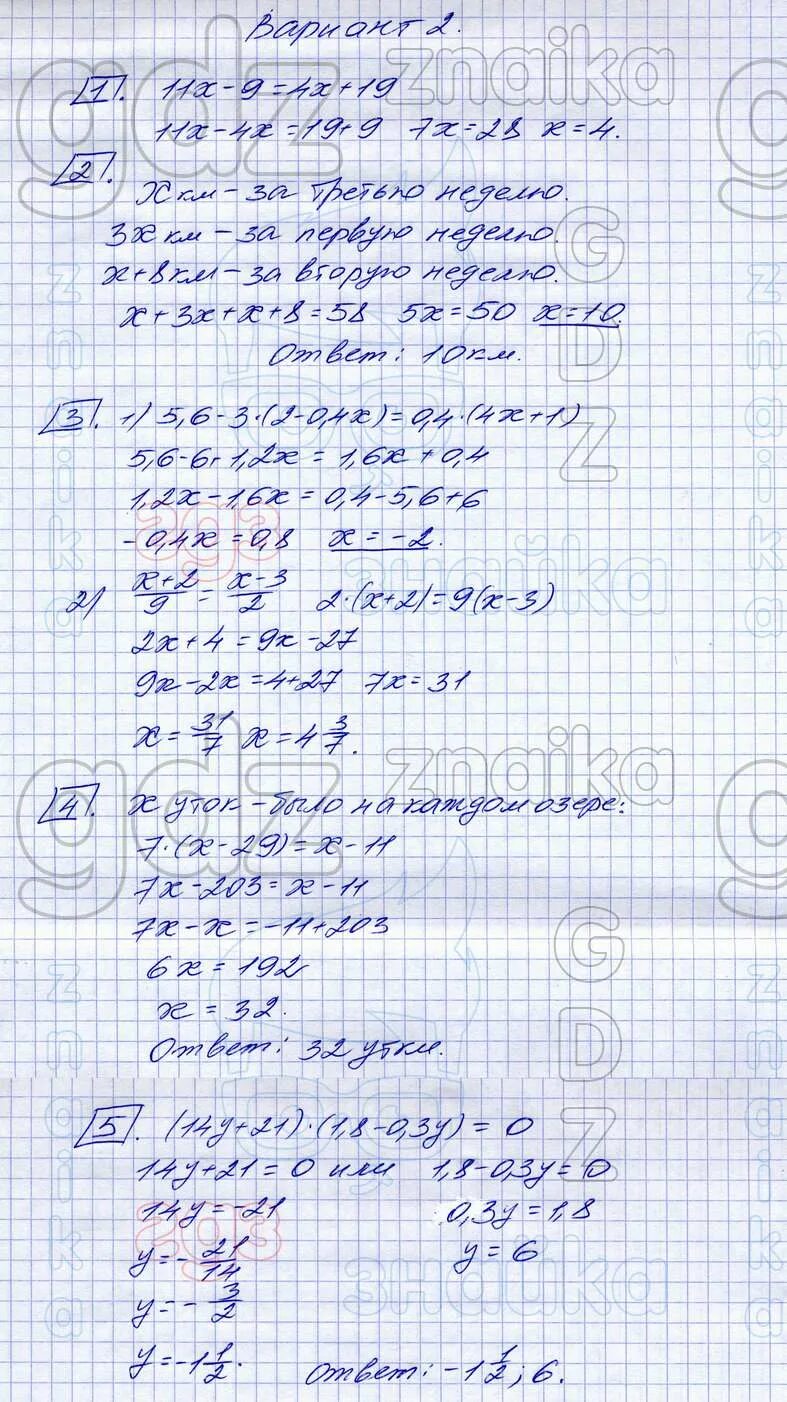 Вариант 2.
1. 11x-9=4x+19
11x-4x=19+9 7x=28 x=4.
2.
x км - за третью неделю.
3x км - за первую неделю.
x+8 км - за вторую неделю.
x+3x+x+8=58 5x=50 x=10.
Ответ: 10 км.
3. 1) 5,6-3·(2-0,4x)=0,4·(4x+1)
5,6-6+1,2x=1,6x+0,4
1,2x-1,6x=0,4-5,6+6
-0,4x=0,8 x=-2.
2) (x+2)/9=(x-3)/2 2·(x+2)=9(x-3)
2x+4=9x-27
9x-2x=4+27 7x=31
x=31/7 x=4 3/7.
4. x уток - было на каждом озере:
7·(x-29)=x-11
7x-203=x-11
7x-x=-11+203
6x=192
x=32.
Ответ: 32 утки.
5. (14y+21)·(1,8-0,3y)=0
14y+21=0 или 1,8-0,3y=0
14y=-21 0,3y=1,8
y=-21/14 y=6
y=-3/2
y=-1 1/2. Ответ: -1 1/2; 6.
gdz
znaika
GDZ
znaika
гдз
знайка
gdz
znaika
GDZ
znaika
гдз
знайка